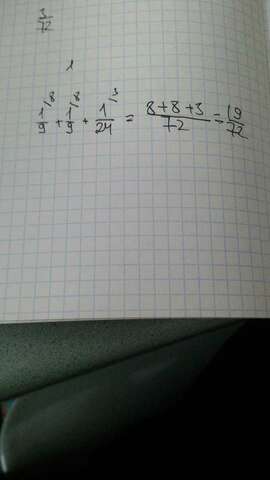 3/72
1
1/9^8 + 1/9^8 + 1/24^3 = 8+8+3/72 = 19/72